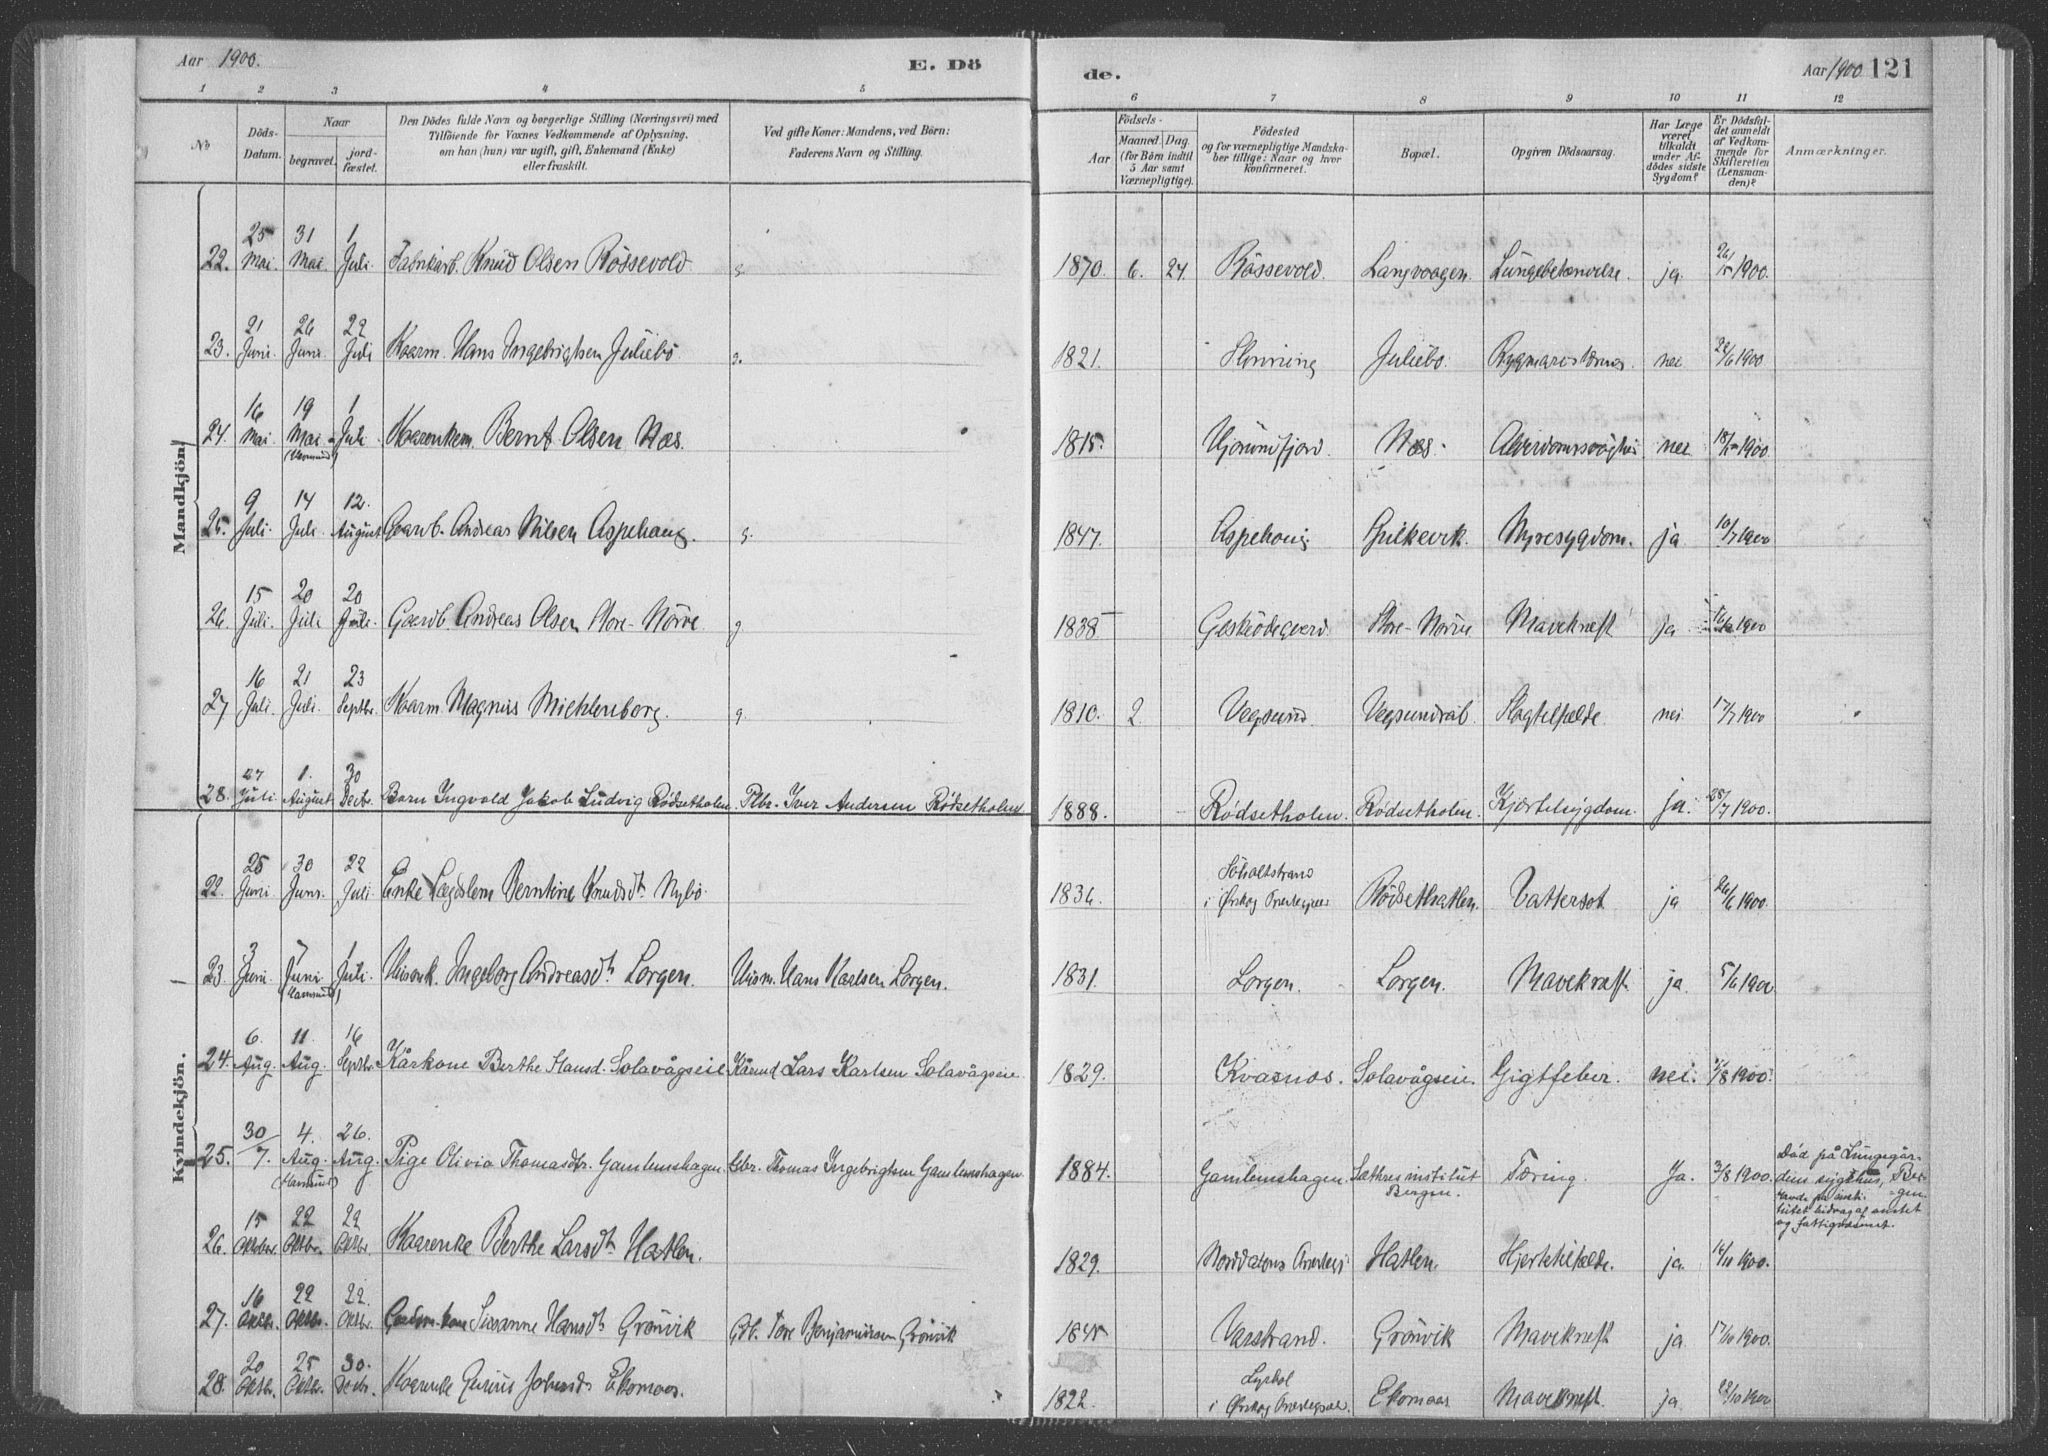 Aar 1900.
E. Dö
de.
Aar 1900 121
1 2 3 4 5 6 7 8 9 10 11 12
No
Döds-Datum.
Naar
begravet.
jord-fæstet.
Den Dödes fulde Navn og borgerlige Stilling (Næringsvei) med
Tilføiende for Voxnes Vedkommende af Oplysning,
om han (hun) var ugift, gift, Enkemand (Enke)
eller fraskilt.
Ved gifte Koner: Mandens, ved Börn:
Faderens Navn og Stilling.
Födsels-
Aar
Maaned Dag
(for Börn indtil
5 Aar samt
Værnepligtige).
Födested
og for værnepligtige Mandska-
ber tillige: Naar og hvor
konfirmeret.
Bopæl.
Opgiven Dödsaarsag.
Har Læge
været
tilkaldt
under Af-
dödes sidste
Sygdom?
Er Dödsfal-
det anmeldt
af Vedkom-
mende for
Skifteretten
(Lensman-
den)?
Anmærkninger.
Mandkjön.
22. 25 Mai. 31 Mai. 1 Juli. Fabrikarb. Knud Olsen Rössevold g. 1870. 6. 24 Rössevold. Langvaagen. Lungebetændelse. ja. 26/5 1900.
23. 21 Juni. 26 Juni. 22 Juli Kaarm. Hans Ingebrigtsen Juliebö g. 1821. Juliebö. nei 22/6 1900
24. 16 Mai 19 Mai 1 Juli Kaarenkem. Bernt Olsen Næs. 1815. Hjörundfjord. Næs. Alderdomssvaghed nei 18/5 1900
25. 9 Juli. 14 Juli. 12. August Gaarb. Andreas Nilsen Aspehaug. g. 1847. Aspehaug Spilkevik. Nyresygdom. ja 10/7 1900
26. 15 Juli. 20 Juli 20 Juli. Gaardb. Andreas Olsen Store-Nörve g 1838 Store-Nörve Mavekræft ja 1900
27 16 Juli. 21 Juli. 23 Septbr. Kaarm. Magnus Michlenborg. g. 1810. 2 Vegsund. Slagtilfælde. nei 17/7 1900
28. 27 Juli 1. August 30 Decbr. Barn Ingvald Jakob Ludvig Rödsetholen. Plbr. Iver Andersen Rödsetholen 1888. Rödsetholen. Rödsetholen. Hjertesygdom. ja. 28/7 1900.
Kvindekjön.
22. 25 Juni 30 Juni. 22 Juli Enke Lægdslem Berntine Knudsdt. Nybö 1836. i Ørskog Præstegjeld Rödsethatlen. Vattersot. ja 26/6 1900.
23 3 Juni 7 Juni 1 Juli. Huusk. Ingeborg Andreasdt. Lorgen. Husm. Hans Karlsen Lorgen. 1831. Lorgen. Lorgen. Mavekræft ja. 5/6 1900
24. 6. Aug. 11. Aug. 16 Septbr. Kårkone Berthe Hansd. Solavågseie Kårmd Lars Karlsen Solavågseie 1829. Kvasnæs. Solavågseie. Gigtfeber. nei. /8 1900.
25. 30/7. 4. Aug. 26. Aug. Pige Olivia Thomasdtr. Gamlemshagen. Gbr. Thomas Ingebrigtsen Gamlemshagen 1884. Gamlemshagen. institut Bergen. Tæring. Ja. 3/8 1900. Död på Lungegår-
dens sygehus, Ber-
gen.
og fattigvæsenet.
26. 15 Oktober 22 Oktbr. 22 Oktbr. Kaarenke Berthe Larsdt. Hatlen. 1829. Hatlen. Hjertetilfælde. ja. 1900.
27. 16 Oktbr. 22 Oktbr. 22. Oktbr. Gaardm.kone Susanne Hansdt. Grönvik Gb. Tore Benjaminsen Grönvik 1845 Vasstrand. Grönvik Mavekræft ja 17/10 1900.
28. 20 Oktbr. 25 Oktbr. 30. Decbr. Kaarenke Gurine Ekornaas. 1822. i Ørskog Præstegjeld Ekornaas Mavekræft. ja. 22/10 1900